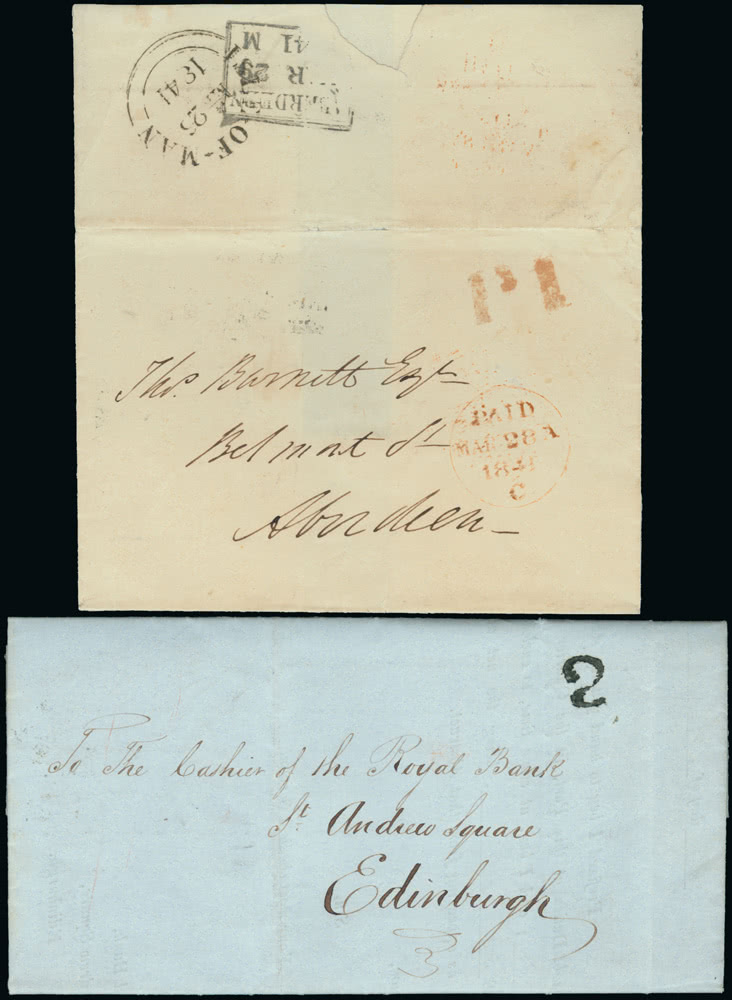 41 M
R 29
ABERDEEN
ISLE-OF-MAN
25
1841
P.1
PAID
MAR 28 A
1841
C
Thos. Burnett Esqr
Belmont St
Aberdeen
2
To The Cashier of the Royal Bank
St. Andrew Square
Edinburgh